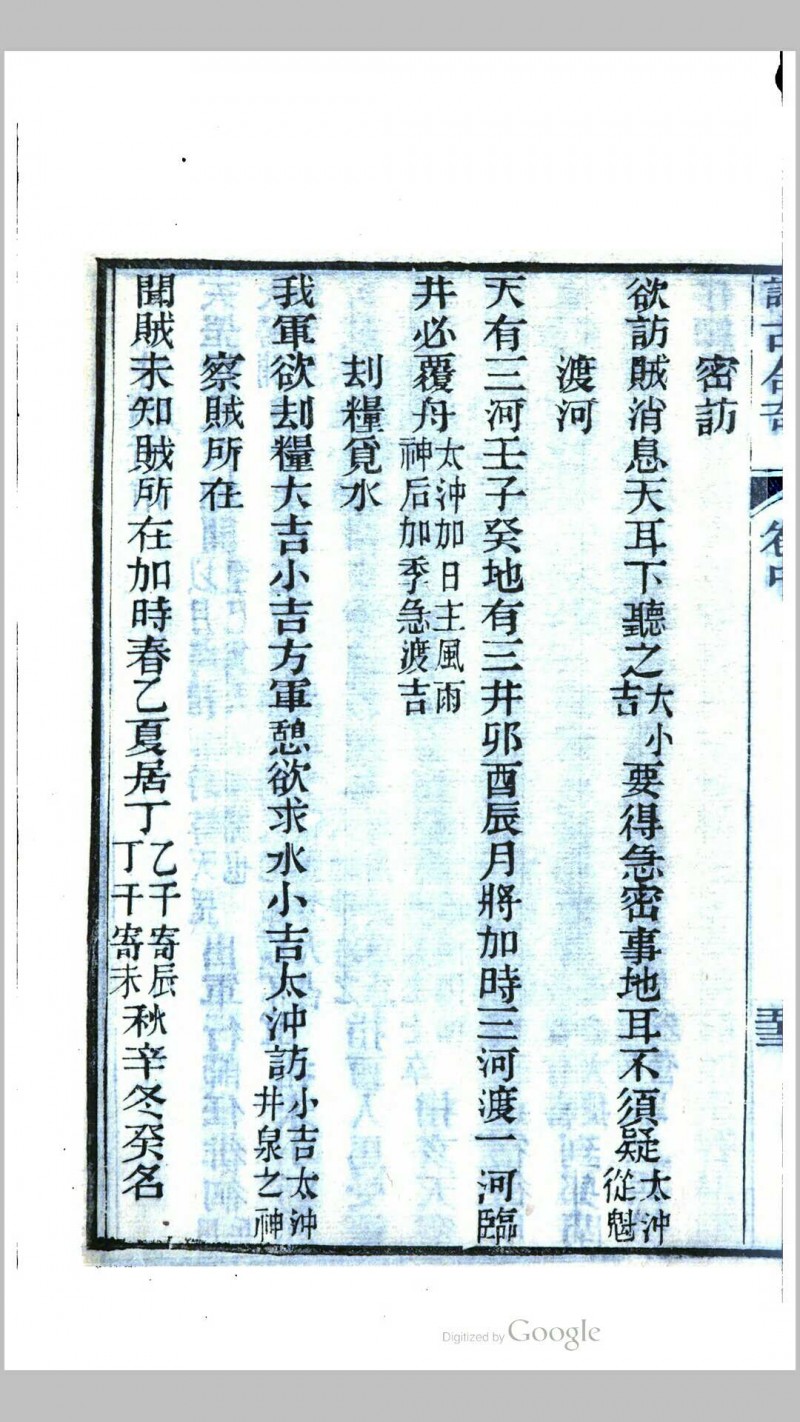 密訪
欲訪賊消息天耳下聽之大小吉要得急密事地耳不須疑太沖從魁
渡河
天有三河壬子癸地有三井卯酉辰月將加時三河渡一河臨
井必覆舟太沖加日主風雨神后加季急渡吉
刦糧覓水
我軍欲刦糧大吉小吉方軍憩欲求水小吉太沖訪小吉太沖井泉之神
察賊所在
聞賊未知賊所在加時春乙夏居丁乙干寄辰丁干寄未秋辛冬癸名
Digitized by Google